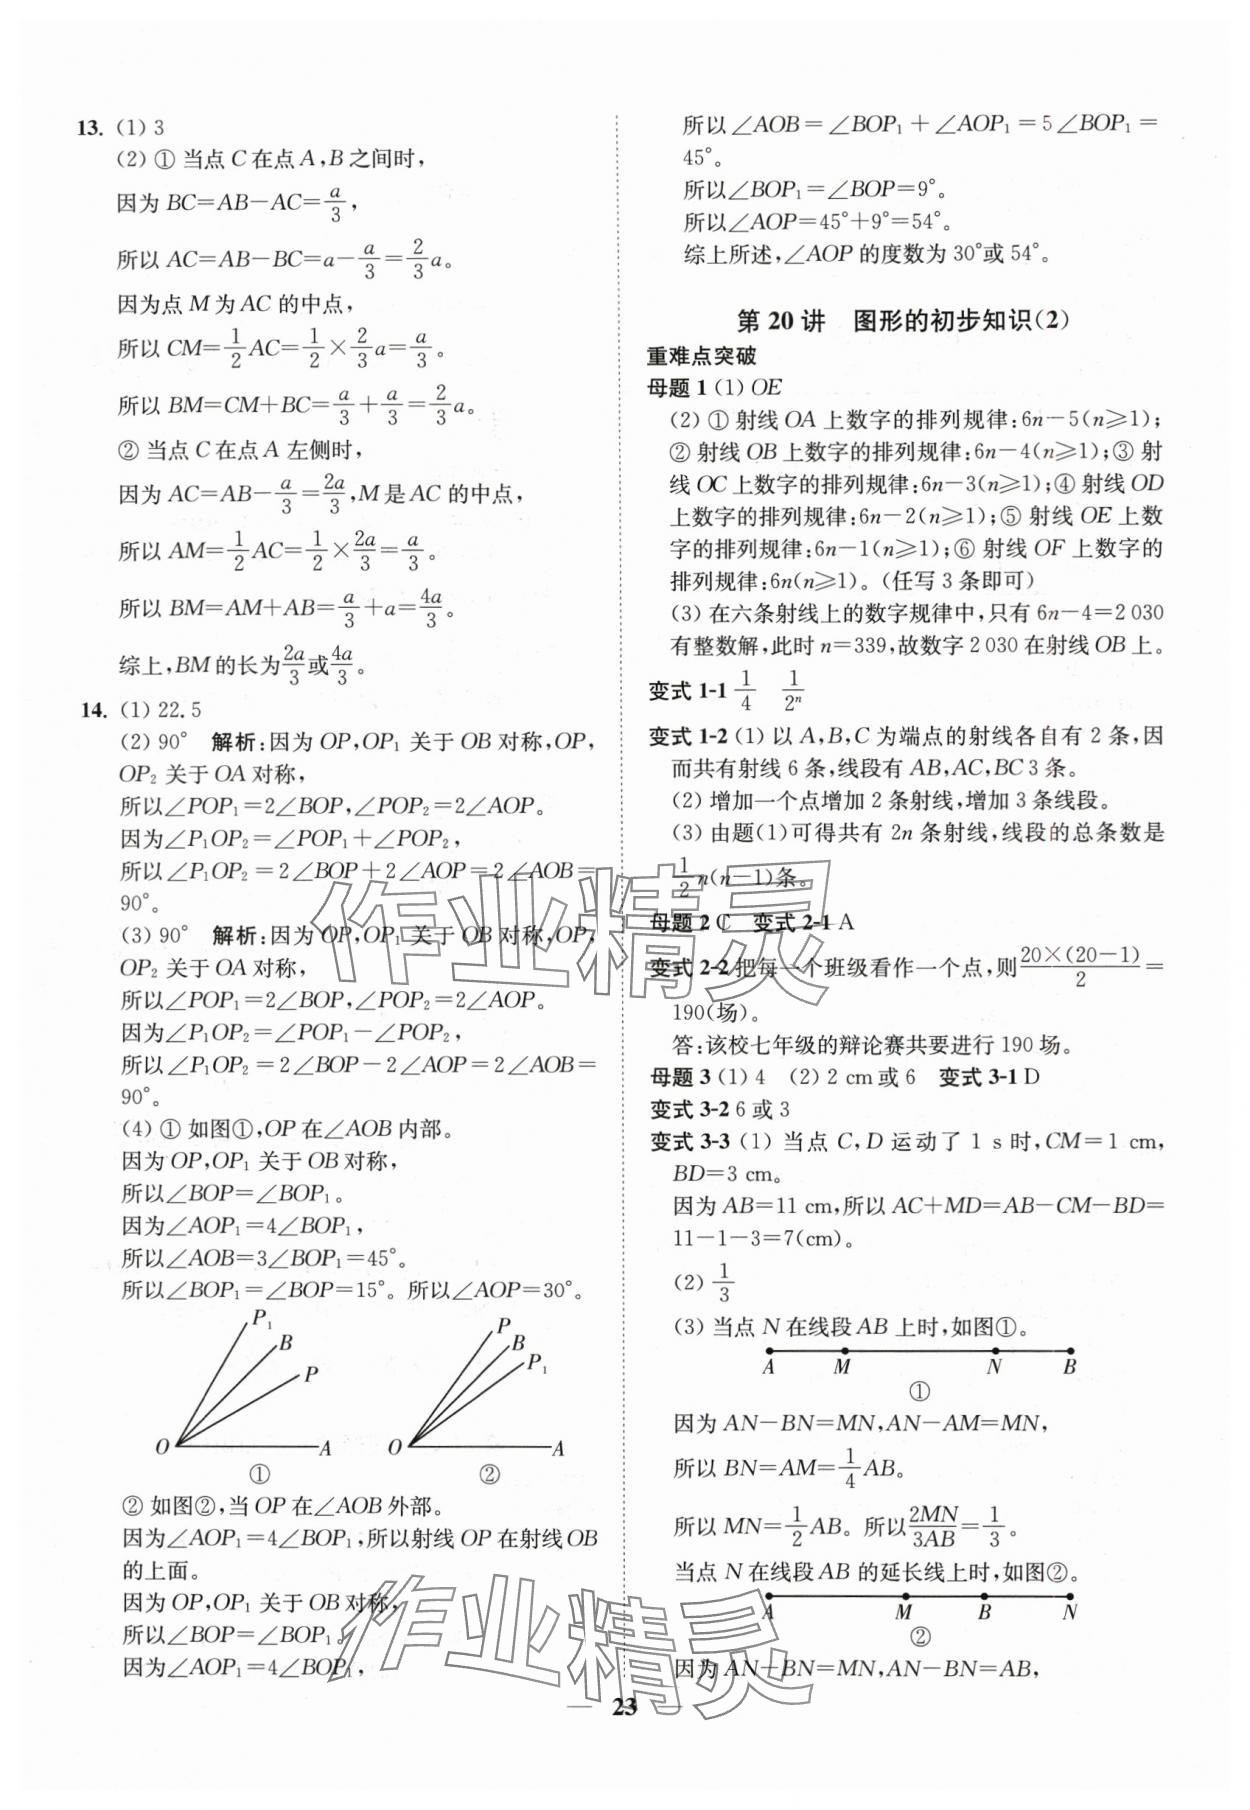 13. (1) 3
(2) ① 当点 C 在点 A,B 之间时,
因为 BC=AB-AC=a/3,
所以 AC=AB-BC=a-a/3=2/3a。
因为点 M 为 AC 的中点,
所以 CM=1/2AC=1/2×2/3a=a/3。
所以 BM=CM+BC=a/3+a/3=2/3a。
② 当点 C 在点 A 左侧时,
因为 AC=AB-a/3=2a/3,M 是 AC 的中点,
所以 AM=1/2AC=1/2×2a/3=a/3。
所以 BM=AM+AB=a/3+a=4a/3。
综上,BM 的长为2a/3或4a/3。
14. (1) 22.5
(2) 90° 解析:因为 OP,OP₁ 关于 OB 对称,OP,
OP₂ 关于 OA 对称,
所以∠POP₁=2∠BOP,∠POP₂=2∠AOP。
因为∠P₁OP₂=∠POP₁+∠POP₂,
所以∠P₁OP₂=2∠BOP+2∠AOP=2∠AOB=
90°。
(3) 90° 解析:因为 OP,OP₁ 关于 OB 对称,OP,
OP₂ 关于 OA 对称,
所以∠POP₁=2∠BOP,∠POP₂=2∠AOP。
因为∠P₁OP₂=∠POP₁-∠POP₂,
所以∠P₁OP₂=2∠BOP-2∠AOP=2∠AOB=
90°。
(4) ① 如图①,OP 在∠AOB 内部。
因为 OP,OP₁ 关于 OB 对称,
所以∠BOP=∠BOP₁。
因为∠AOP₁=4∠BOP₁,
所以∠AOB=3∠BOP₁=45°。
所以∠BOP₁=∠BOP=15°。所以∠AOP=30°。
P₁ B P O A ①
P B P₁ O A ②
② 如图②,当 OP 在∠AOB 外部。
因为∠AOP₁=4∠BOP₁,所以射线 OP 在射线 OB
的上面。
因为 OP,OP₁ 关于 OB 对称,
所以∠BOP=∠BOP₁。
因为∠AOP₁=4∠BOP₁,
所以∠AOB=∠BOP₁+∠AOP₁=5∠BOP₁=
45°。
所以∠BOP₁=∠BOP=9°。
所以∠AOP=45°+9°=54°。
综上所述,∠AOP 的度数为 30°或 54°。
第 20 讲 图形的初步知识(2)
重难点突破
母题 1 (1) OE
(2) ① 射线 OA 上数字的排列规律:6n-5(n≥1);
② 射线 OB 上数字的排列规律:6n-4(n≥1);③ 射
线 OC 上数字的排列规律:6n-3(n≥1);④ 射线 OD
上数字的排列规律:6n-2(n≥1);⑤ 射线 OE 上数
字的排列规律:6n-1(n≥1);⑥ 射线 OF 上数字的
排列规律:6n(n≥1)。(任写 3 条即可)
(3) 在六条射线上的数字规律中,只有 6n-4=2 030
有整数解,此时 n=339,故数字 2 030 在射线 OB 上。
变式 1-1 1/4 1/2ⁿ
变式 1-2 (1) 以 A,B,C 为端点的射线各自有 2 条,因
而共有射线 6 条,线段有 AB,AC,BC 3 条。
(2) 增加一个点增加 2 条射线,增加 3 条线段。
(3) 由题(1)可得共有 2n 条射线,线段的总条数是
1/2n(n-1)条。
母题 2 C 变式 2-1 A
变式 2-2 把每一个班级看作一个点,则20×(20-1)/2=
190(场)。
答:该校七年级的辩论赛共要进行 190 场。
母题 3 (1) 4 (2) 2 cm或 6 变式 3-1 D
变式 3-2 6 或 3
变式 3-3 (1) 当点 C,D 运动了 1 s 时,CM=1 cm,
BD=3 cm。
因为 AB=11 cm,所以 AC+MD=AB-CM-BD=
11-1-3=7(cm)。
(2) 1/3
(3) 当点 N 在线段 AB 上时,如图①。
A M N B
①
因为 AN-BN=MN,AN-AM=MN,
所以 BN=AM=1/4AB。
所以 MN=1/2AB。所以2MN/3AB=1/3。
当点 N 在线段 AB 的延长线上时,如图②。
A M B N
②
因为 AN-BN=MN,AN-BN=AB,
23
作业精灵
作业精灵